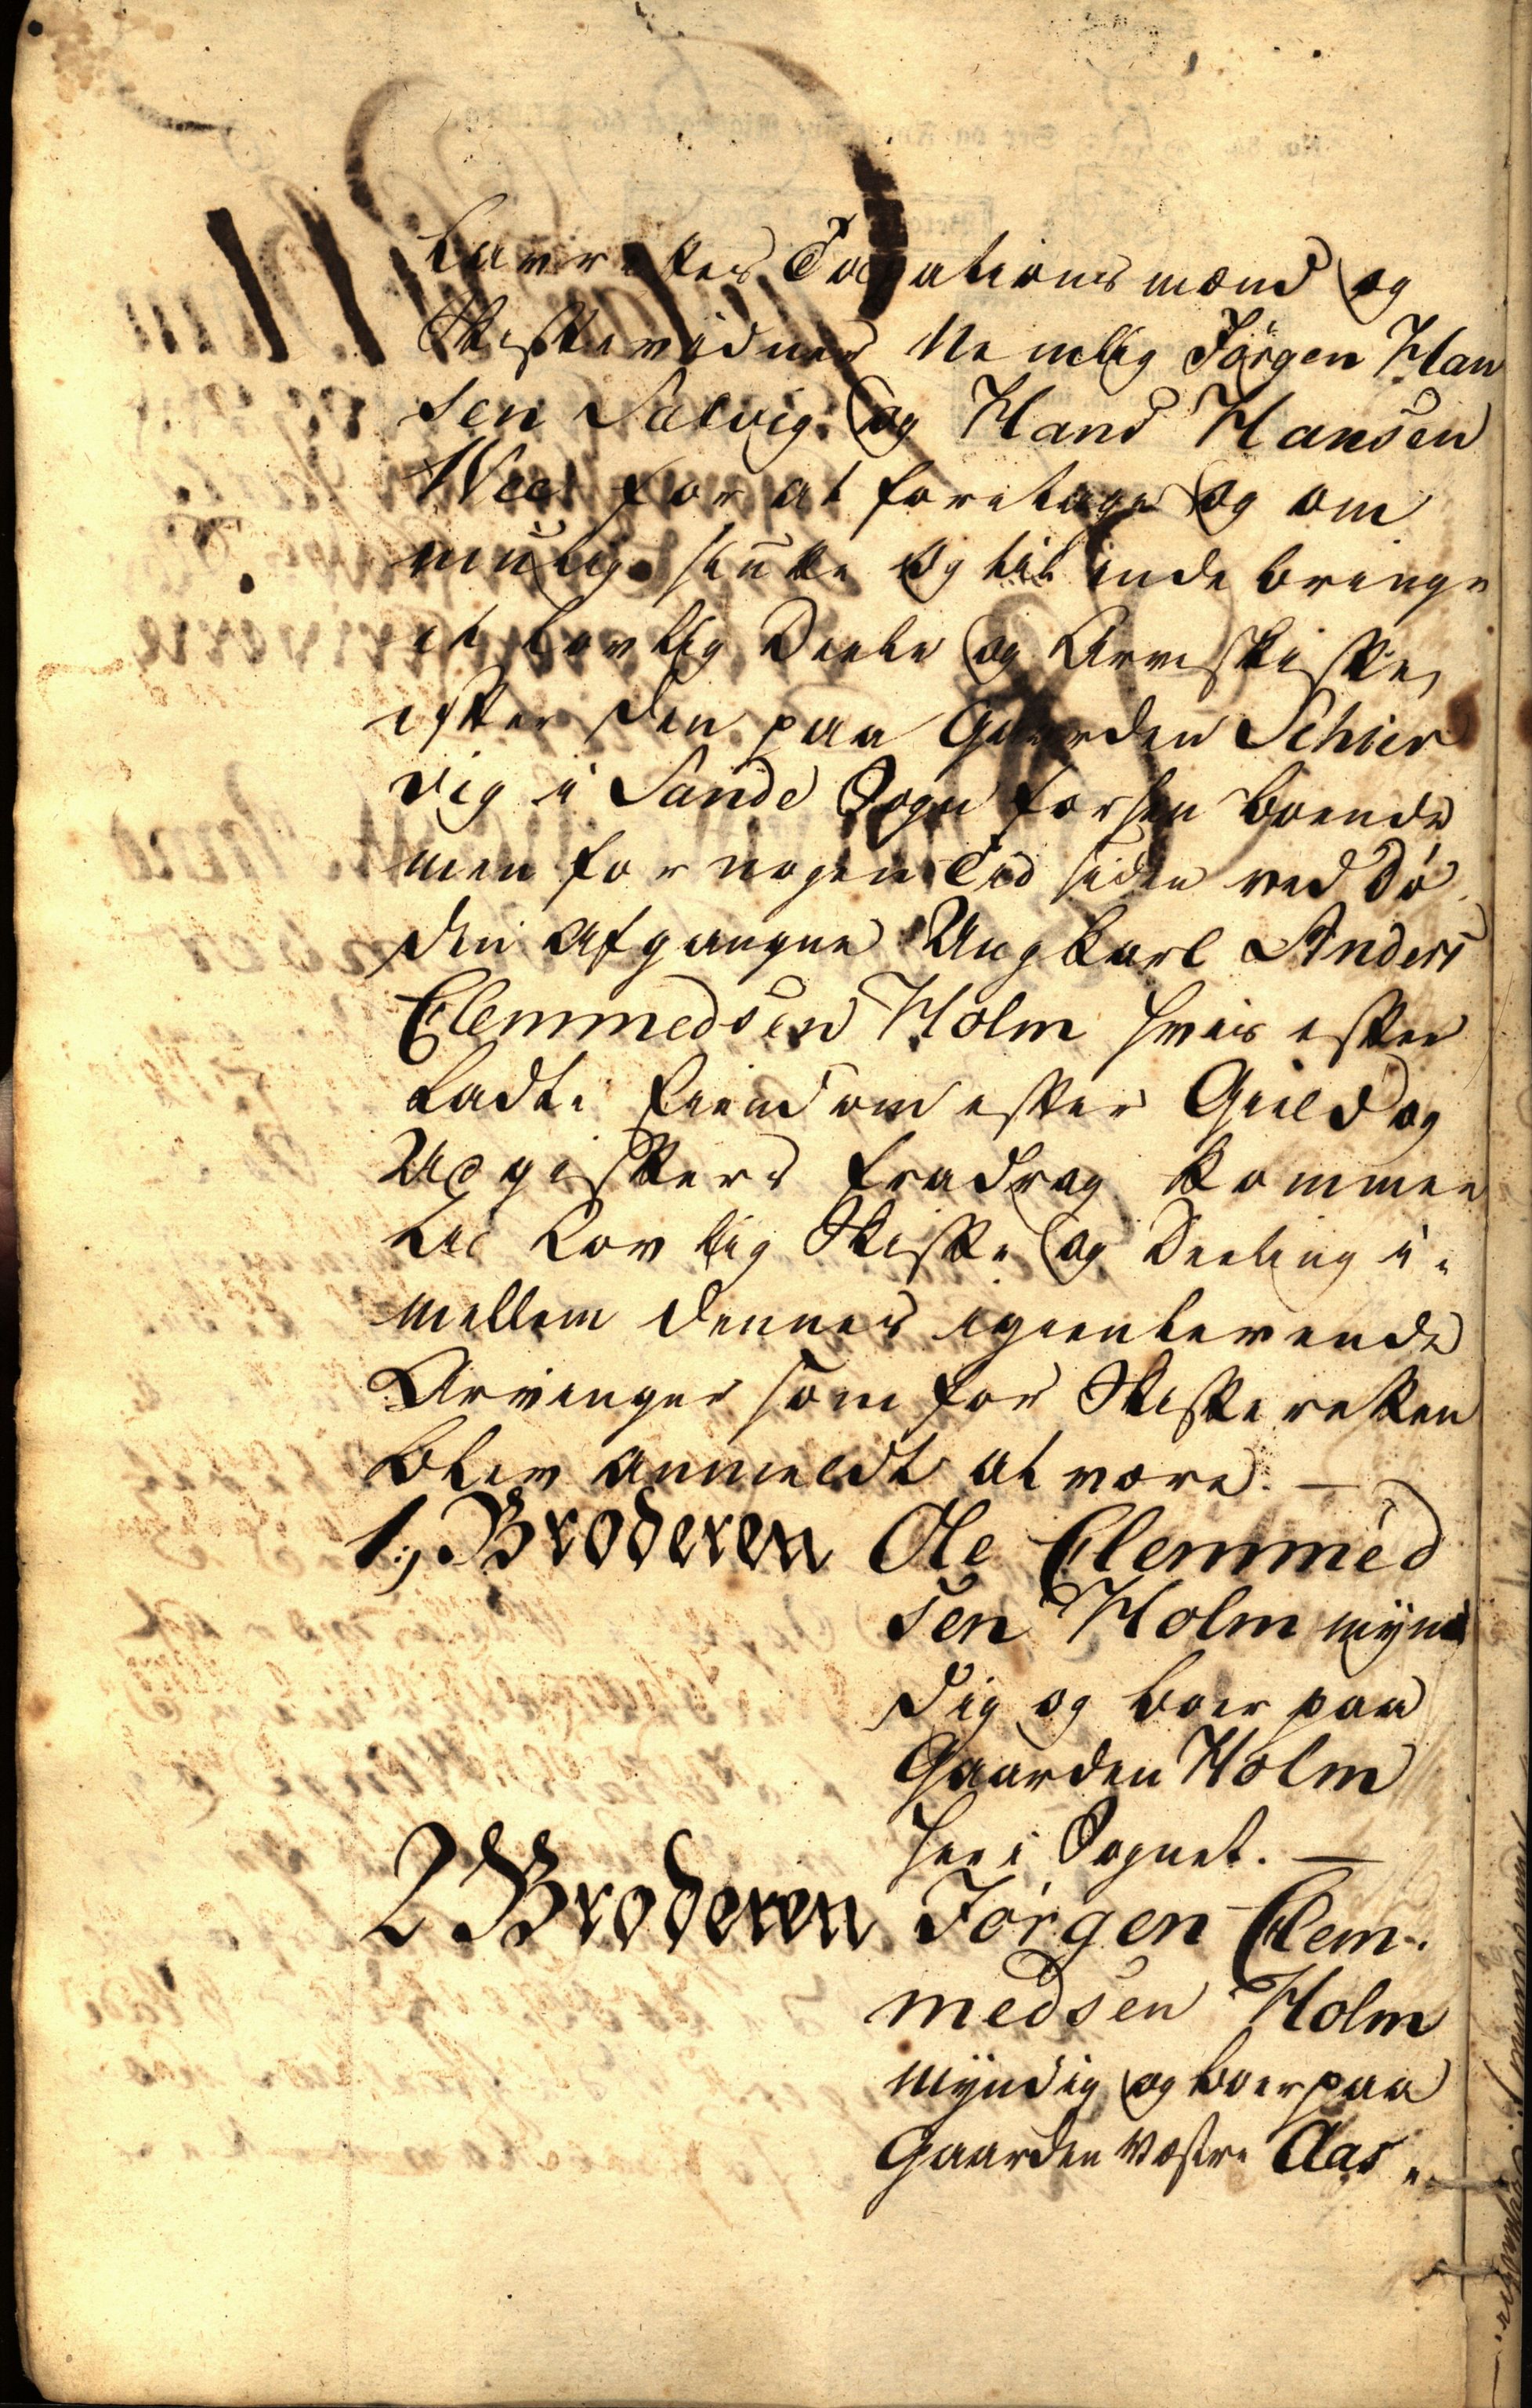 Laurettes Taxations mænd og
Skiftevidner Nemlig Jörgen Han
sen Sælvig og Hans Hansen
Wee for at foretage og om
muelig slutte og til ende bringe
et Lovlig Deele og Arveskifte,
efter den paa Gaarden Schier
vig i Sande Sogn forhen boende
men for nogen Tid siden ved Dö
den Afgangne Ungkarl Anders
Clemmedsen Holm hvis efter
ladte Eiendom efter Gield og
Udgifters fradrag kommer
til Lovlig Skifte og Deeling i„
mellem dennes igienlevende
Arvinger som for Skifteretten
blev anmeldt at være. —
1., Broderen Ole Clemmed
sen Holm mÿn
dig og boer paa
Gaarden Holm
her i Sognet. —
2 Broderen Jörgen Clem„
medsen Holm
mÿndig og boer paa
Gaarden Vestre Aas„